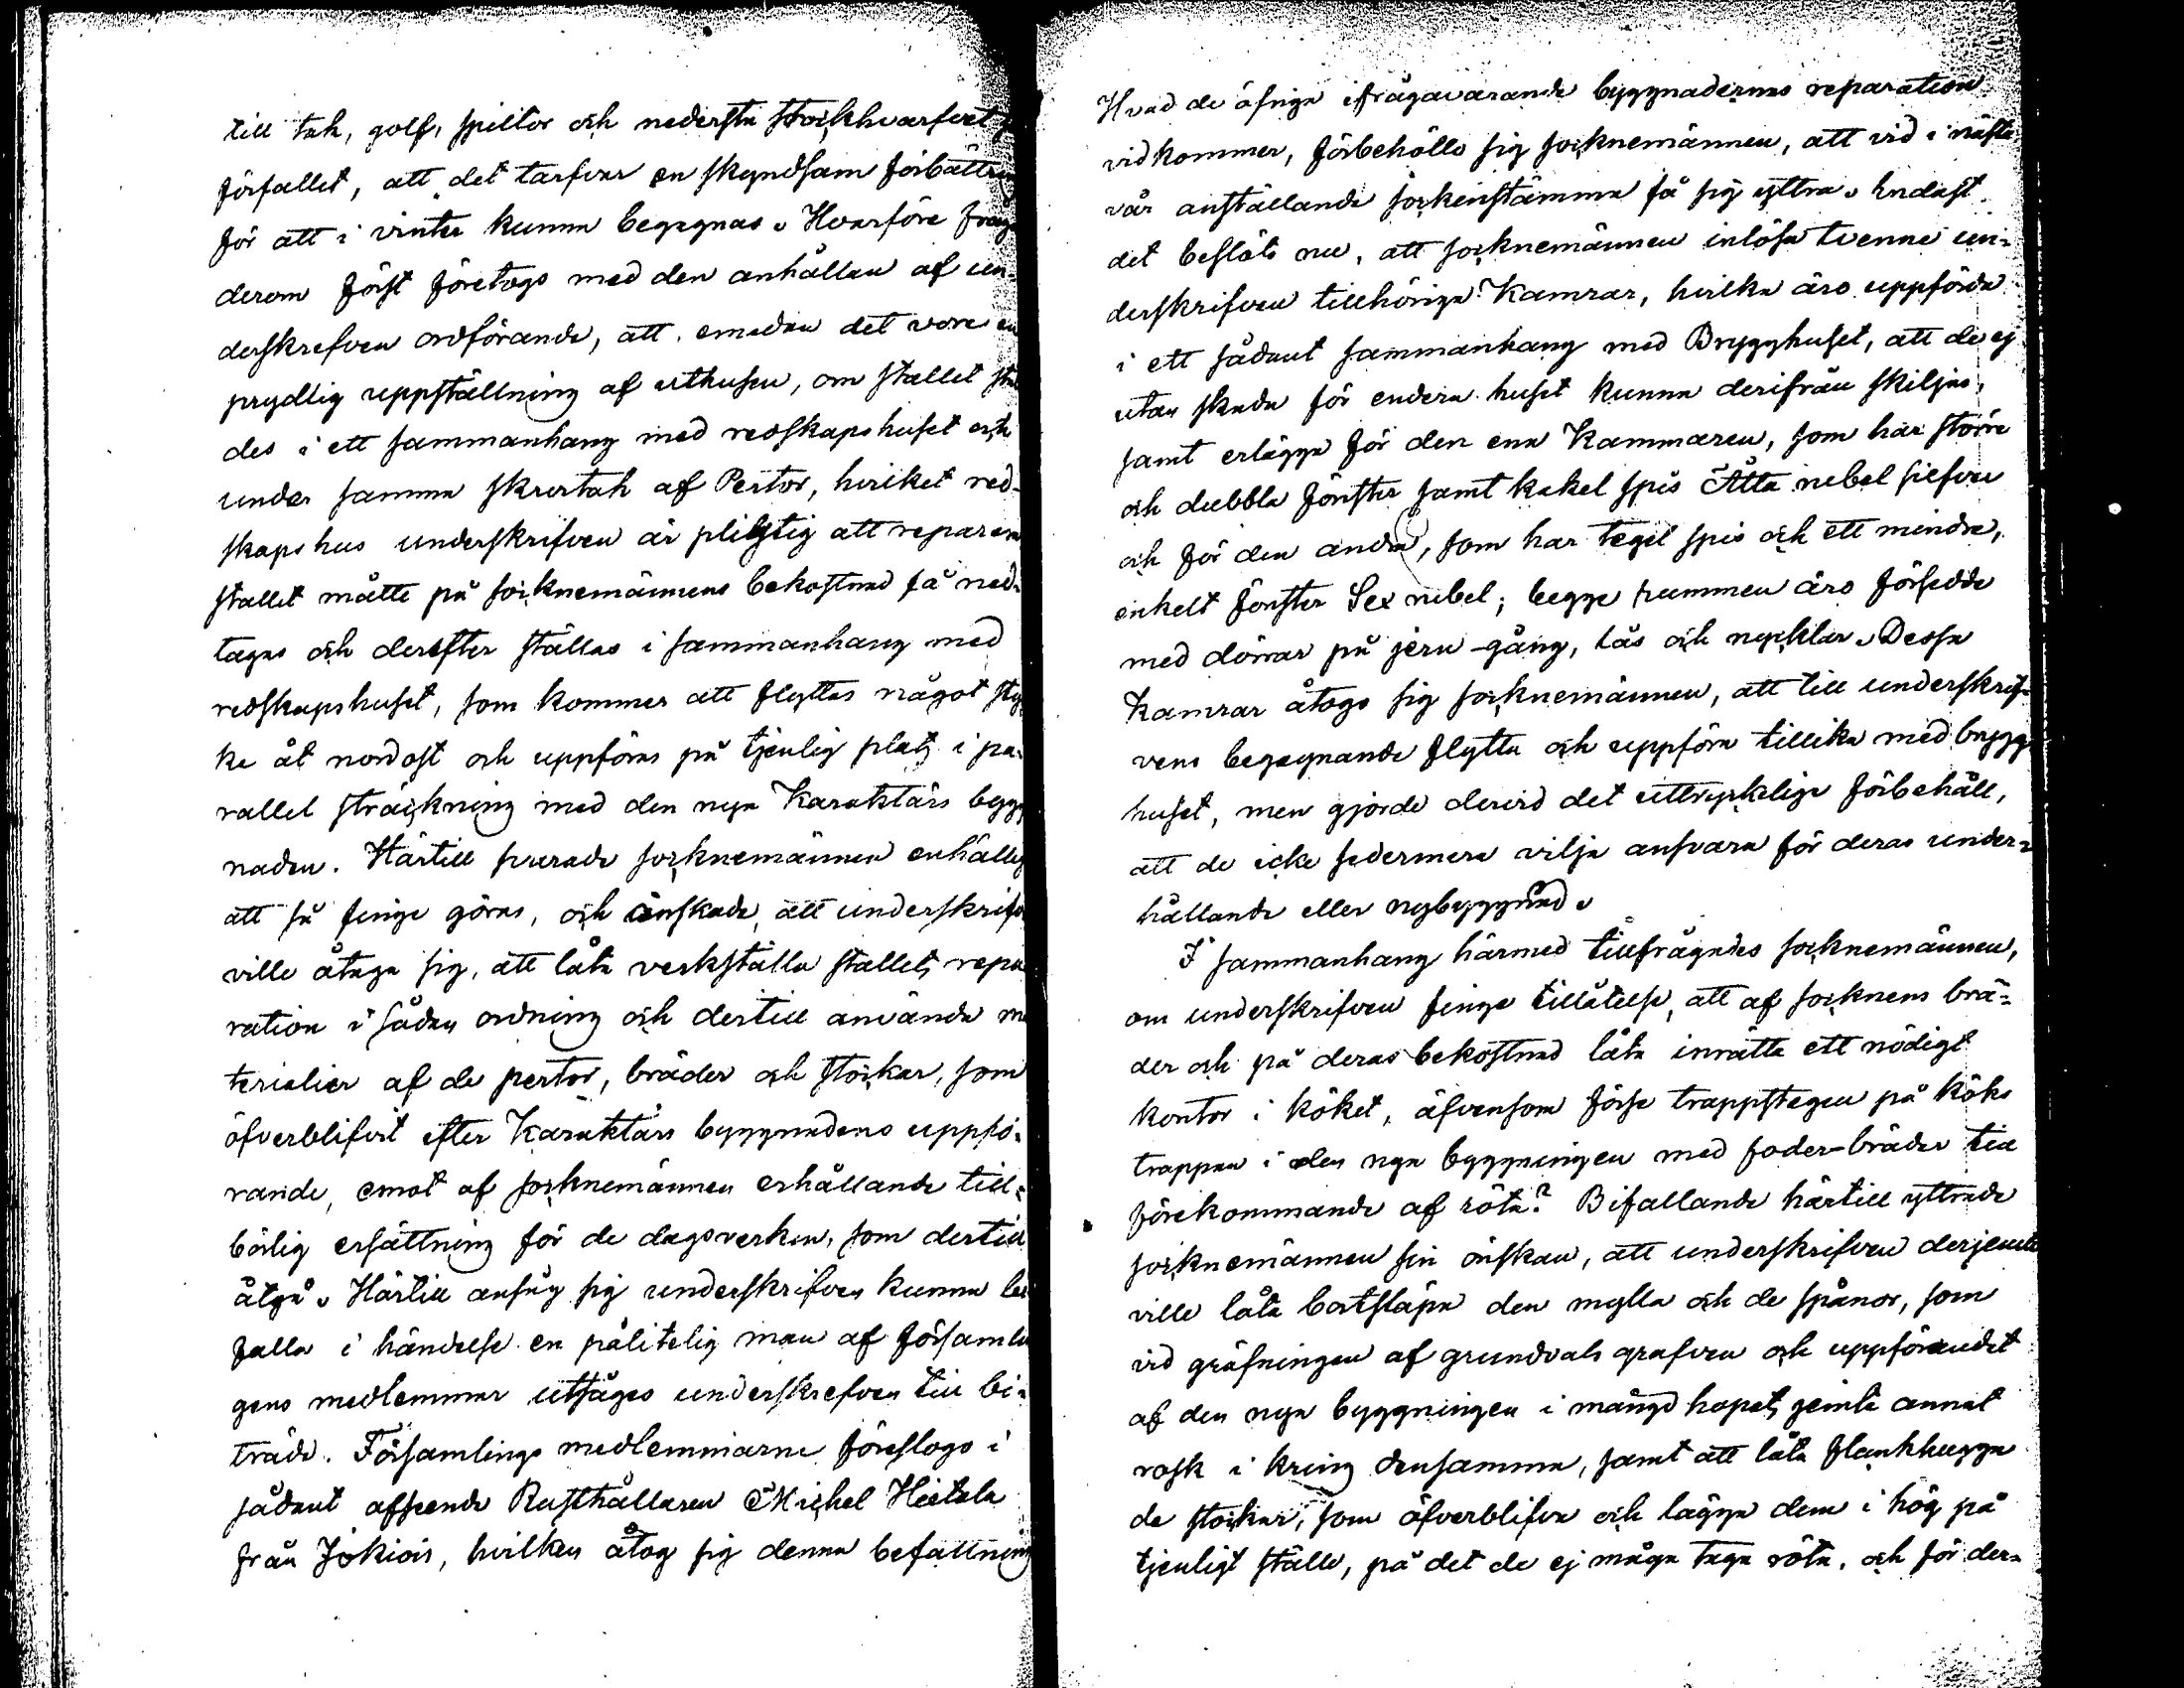 till tak, golf, spiltor och nedersta stockhvarfvet
förfallet, att det tarfvar en skyndsam förbättring
för att i vinter kunna begagnas. Hvarföre fråga
derom först företogs med den anhållan af un-
derskrefven ordförande, att emedan det vore en
prydlig uppställning af uthusen, om stallet
des i ett sammanhang med redskapshuset och
under samma skrufvtak af Pertor, hvilket red-
skapshus underskrifven är pligtig att reparera
stallet måtte på socknemännens bekostnad få ned-
tagas och derefter ställas i sammanhang med
redskapshuset, som kommer att flyttas något styc
ke åt nordost och uppföras på tjenlig plats i pa-
rallel sträckning med den nya Karaktärs bygg
naden. Härtill svarade socknemännen enhällig
att så finge göras, och önskade, att underskrifv
ville åtaga sig, att låta verkställa stallets repa
ration i sådan ordning och dertill använda ma
terialier af de pertor, bräder och stockar, som
öfverblifvit efter Karaktärs byggnadens uppfö-
rande, emot af socknemännen erhållande till-
börlig ersättning för de dagsverken, som dertill
åtgå. Härtill ansåg sig underskrifven kunna be
falla i händelse en pålitelig man af församlin
gens medlemmar utsåges underskrefven till bi-
träde. Församlings medlemmarne föreslogo i
sådant afseende Rusthållaren Michel Hietala
från Jokiois, hvilken åtog sig denna befattning
Hvad de öfriga ifrågavarande byggnadernas reparation
vidkommer, förbehöllo sig socknemännen, att vid i nästa
vår anställande sockenstämma få sig yttra. Endast
det beslöts nu, att socknemännen inlösa tvenne un-
derskrifven tillhöriga Kamrar, hvilka äro uppförda
i ett sådant sammanhang med Brygghuset, att de ej
utan skada för endera huset kunna derifrån skiljas,
samt erlägga för den ena Kammaren, som har större
och dubbla fönster samt kakel spis Åtta rubel silfver
och för den andra, som har tegel spis och ett mindre,
enkelt fönster Sex rubel; begge rummen äro försedde
med dörrar på jern-gång, lås och nycklar. Dessa
Kamrar åtogo sig socknemännen, att till underskrif-
vens begagnande flytta och uppföra tillika med brygg
huset, men gjorde dervid det uttryckelige förbehåll,
att de icke sedermera vilja ansvara för deras under-
hållande eller nybyggnad.
I sammanhang härmed tillfrågades socknemännen,
om underskrifven finge tillåtelse, att af socknens brä-
der och på deras bekostnad låta inrätta ett nödigt
kontor i köket, äfvensom förse trappstegen på köks
trappan i den nya byggningen med foder-bräder till
förekommande af röta? Bifallande härtill yttrade
socknemännen sin önskan, att underskrifven derjemte
ville låta bortsläpa den mylla och de spånor, som
vid gräfningen af grundvals grafven och uppförandet
af den nya byggningen i mängd hopats jemte annat
rosk i kring densamma, samt att låta flankhugga
de stockar, som öfverblifva och lägga dem i hög på
tjenligt ställe, på det de ej måga taga röta, och för der-